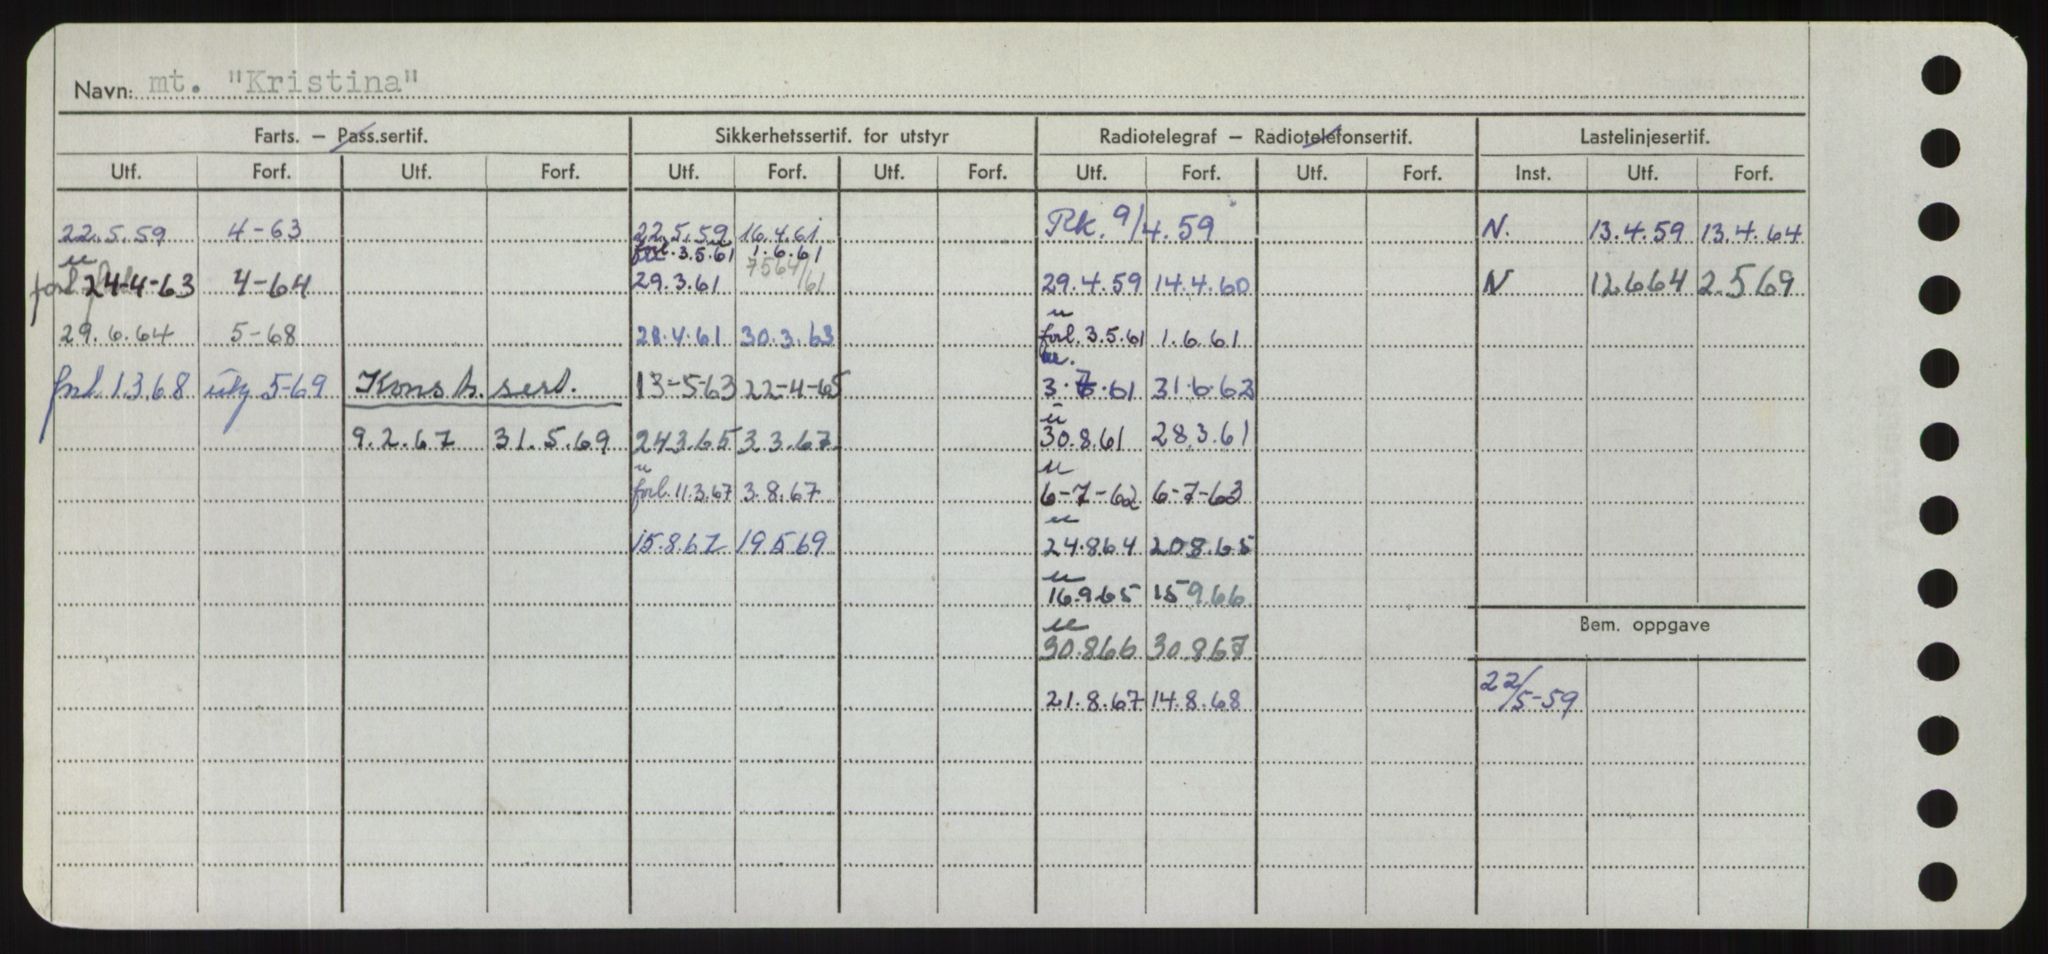 Navn: mt. "Kristina"
Farts. — Pass.sertif. Sikkerhetssertif. for utstyr Radiotelegraf — Radiotelefonsertif. Lastelinjesertif.
Utf. Forf. Utf. Forf. Utf. Forf. Utf. Forf. Utf. Forf. Utf. Forf. Inst. Utf. Forf.
22.5.59 4-63 22.5.59 16.4.61 Rk. 9/4.59 N. 13.4.59 13.4.64
u forl. 3.5.61 1.6.61
forl 24-4-63 4-64 29.3.61 29.4.59 14.4.60 N 12.6.64 2.5.69
u
29.6.64 5-68 28.4.61 30.3.63 forl. 3.5.61 1.6.61
forl. 1.3.68 5-69 Konstr. sert. 13-5-63 22-4-65 31.6.62
u
9.2.67 31.5.69 24.3.65 3.3.67 30.8.61 28.3.61
u u
forl. 11.3.67 3.8.67 6-7-62 6-7-63
u
15.8.67 19.5.69 24.8.64 20.8.65
u
16.9.65 15.9.66
u
Bem. oppgave
30.8.66 30.8.67
21.8.67 14.8.68 22/5-59